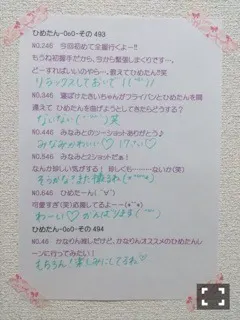 ひめたん-OcO-その 493
NO.246　今回初めて全握行くよー!!
もうね初握手だから、今から緊張しまくりですー。
どーすればいいのやら…。教えてひめたん!!笑
リラックスしておいで(("▽"))
寝ぼけたさいちゃんがフライパンとひめたんを間
違えて ひめたんを曲げようとしてきたらどうする?
ないない(¨)笑
NO.446　みなみとのツーショットありがとう♪
みなみかわいい♡
NO.546　みなみと2ショットだぁ!
なんか珍しい気がする!　珍しくも……ないか(笑)
そうかな?また撮るね
NO.646　ひめたーん(´∀`)
可愛すぎ(笑)応援してるよーー(+´`+)
わーい♡がんばります(¨)
ひめたん-OcO-その 494
NO.46　かなりん推しだけど、かなりんオススメのひめたんレ
ーンに行ってみたい!
もちろん!楽しみにしてるね♡